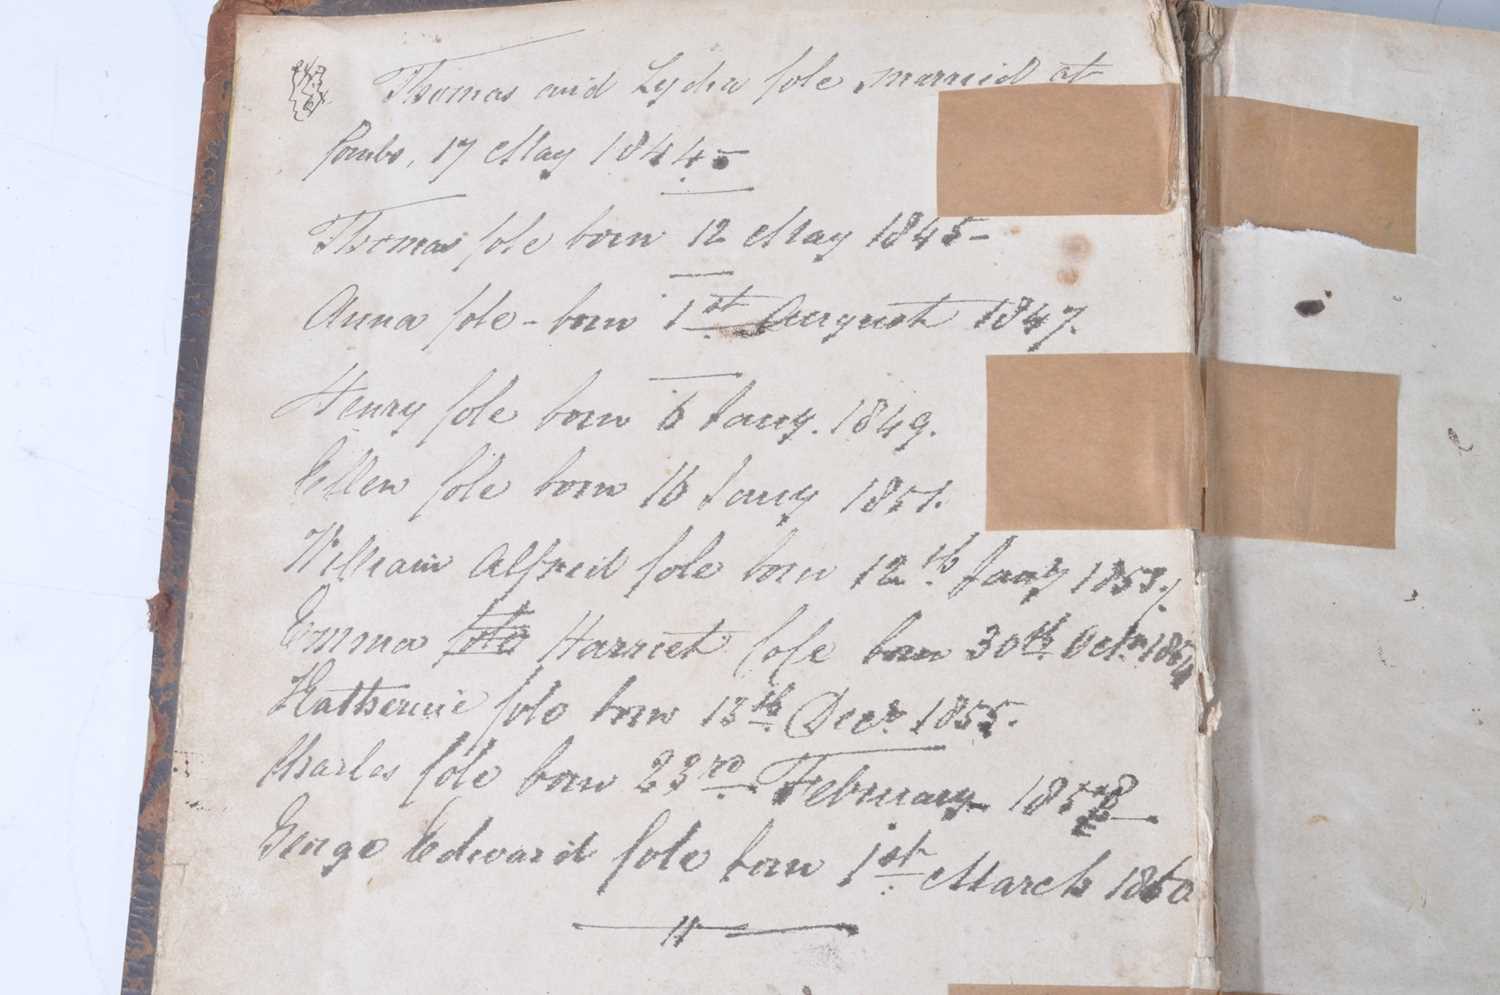 Thomas and Lydia Sole married at
17 May 1844
Thomas Sole born 12 May 1845
Anna Sole - born 1st August 1847.
Henry Sole born 6 Jany. 1849.
Ellen Sole born 16 Jany 1851.
William Alfred Sole born 12th Jany 1853.
Emma Sole Harriet Sole born 30th Octr. 1854
Katherine Sole born 13th Decr. 1855.
Charles Sole born 23rd February 1858
George Edward Sole born 1st March 1860